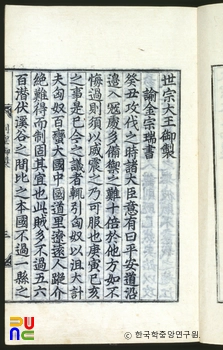 世宗大王御製
諭金宗瑞書
癸丑攻伐之時諸大臣意有曰平安道沿
邊入冦處多備禦之難十倍於他方如不
悔過則須以威震之乃可服也庚寅己亥
之事是已今之議者輒引匈奴以沮大計
夫匈奴百蠻大國中國道里遼遠人蹤介
絶難得而制固其宜也此賊多不過五六
百潜伏溪谷之間比之本國不過一縣之
한국학중앙연구원